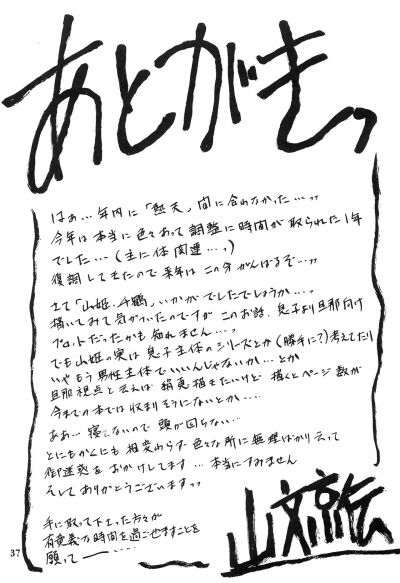 あとがきっ
はぁ…年内に「熱天」間に合わなかった…ッッ
今年は本当に色々あって調整に時間が取られた1年
でした…(主に体関連…っ)
復調してきたので来年はこの分がんばるぞ…ッッ
さて「山姫・千鶴」いかがでしたでしょうか…っ
描いてみて気がついたのですがこのお話、息子より旦那向け
プロットだったかも知れません…っ
でも山姫の実は息子主体のシリーズとか(勝手に?)考えてたり
いやもう男性主体でいいんじゃないか…とか
旦那視点と云えば絹恵描きたいけど描くとページ数が
今までの本では収まりそうにないとか…
ああ…寝てないので頭が回らない…
とにもかくにも相変わらず色々な所に無理ばかり云って
御迷惑をおかけしてます…本当にすみません
そしてありがとうございますッッ
手に取って下さった方々が
有意義な時間を過ごせますことを
願って――…
山文京伝
37